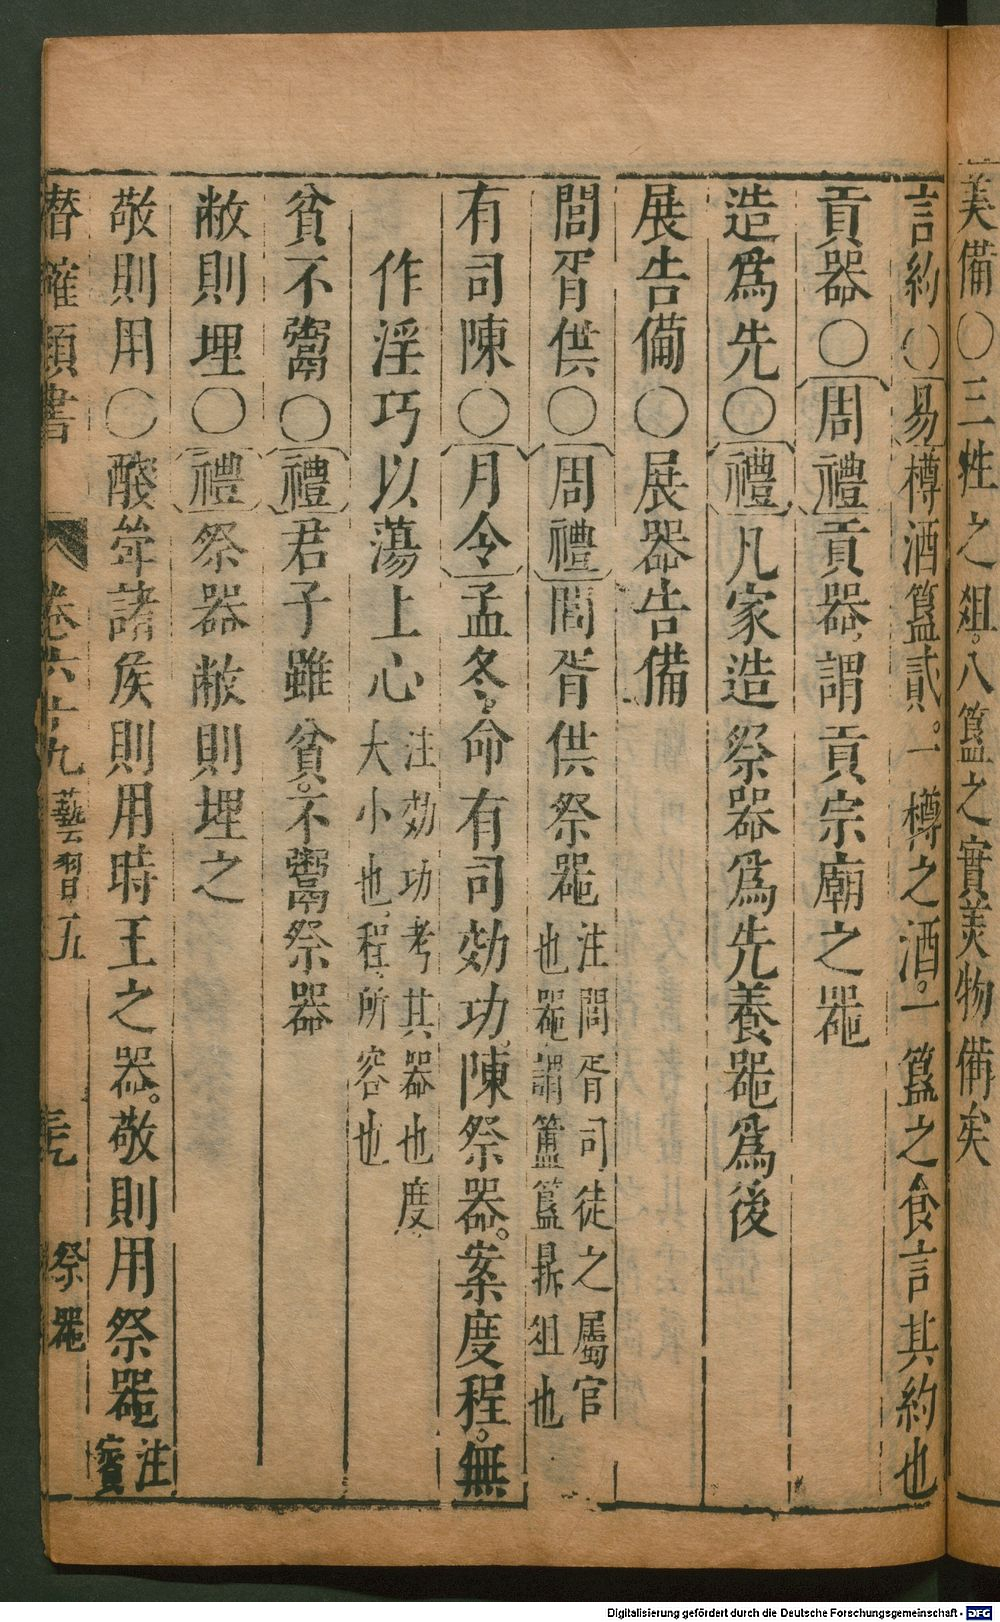 美備〇三牲之俎。八簋之實美物備矣
言約〇易樽酒簋貳。一樽之酒。一簋之食言其約也
貢器〇周禮貢器。謂貢宗廟之噐
造爲先〇禮凡家造祭器爲先養噐爲後
展告備〇展器告備
閭胥供〇周禮閭胥供祭噐注閭胥司徒之屬官
也噐謂簠簋鼎俎也
有司陳〇月令孟冬。命有司効功。陳祭器。案度程。無
作淫巧以蕩上心注効功考其器也度
大小也。程。所容也
貧不鬻〇禮君子雖貧。不鬻祭器
敝則埋〇禮祭器敝則埋之
敬則用〇醆斝諸矦則用時王之器。敬則用祭噐注
賓
潛確類書 卷六十九 藝習五 祭噐
Digitalisierung gefördert durch die Deutsche Forschungsgemeinschaft - DFG